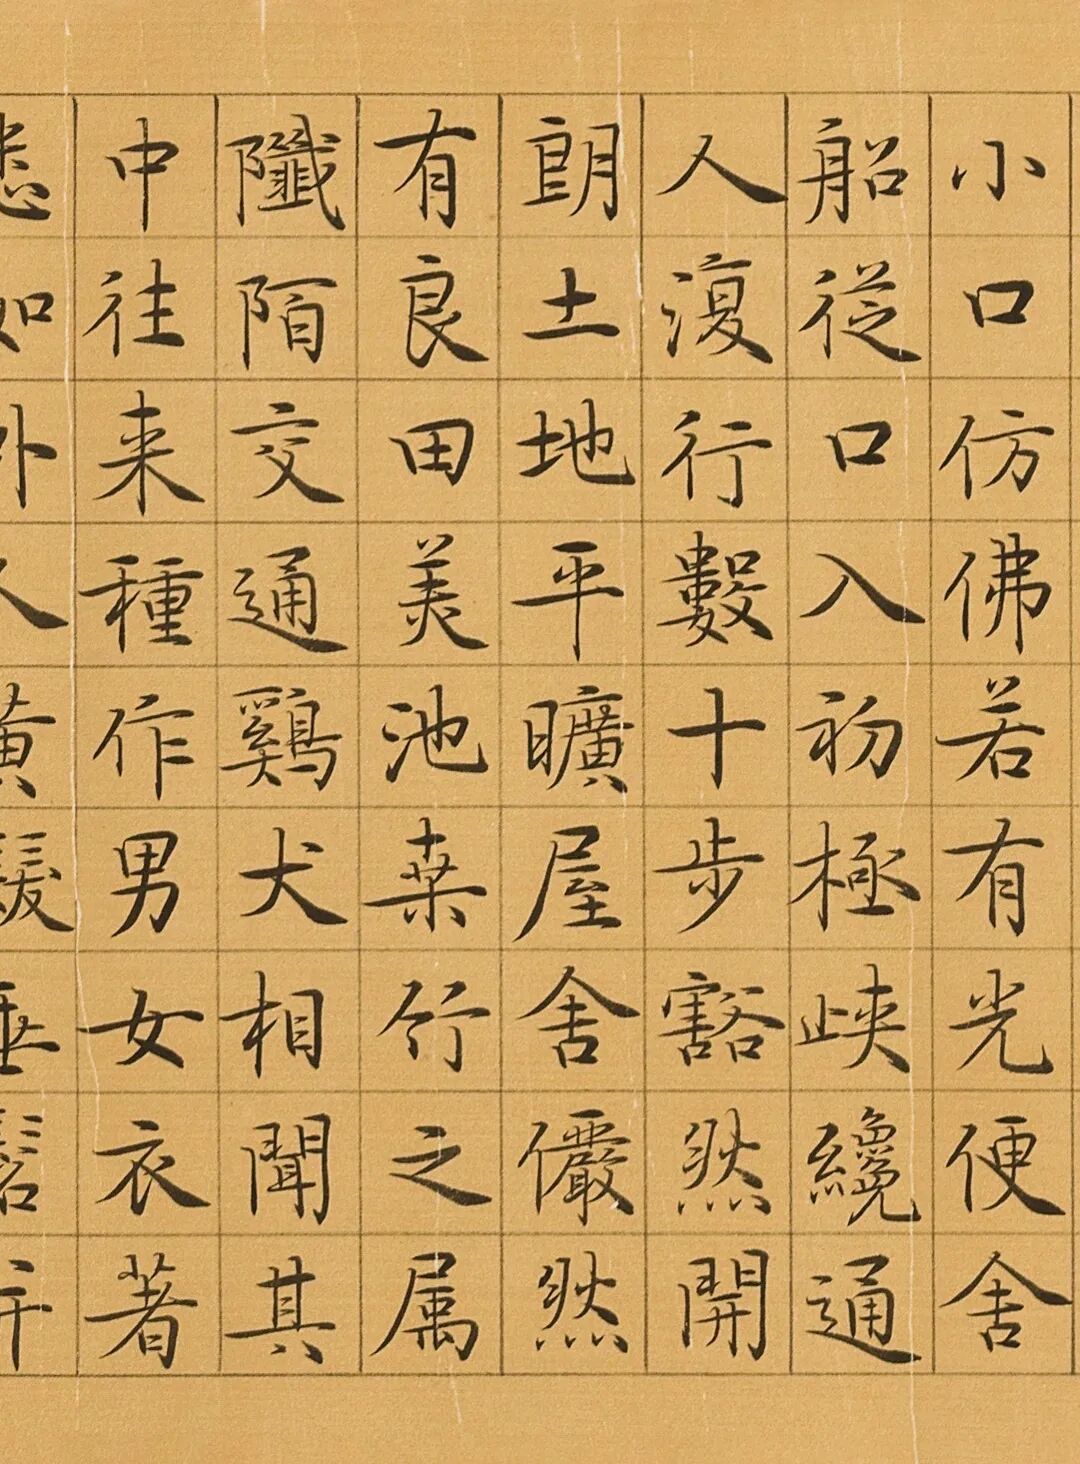 小口仿佛若有光便舍
船從口入初極峽纔通
人復行數十步豁然開
朗土地平曠屋舍儼然
有良田美池桒竹之属
陌交通鷄犬相聞其
中往来種作男女衣著
悉如外人黄髮垂髫并